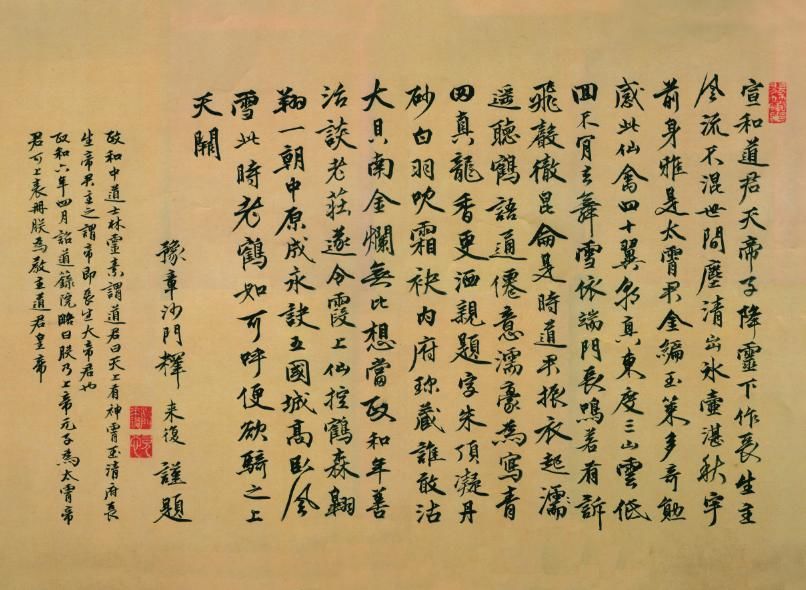 宣和道君天帝子降靈下作長生主
風流不混世間塵清出冰壺湛秋宇
前身雅是太霄君金編玉策多奇勳
感此仙禽四十翼朝真東度三山雲低
回不肎去舞雪依端門長鳴若有訴
飛聲徹昆侖是時道君振衣起濡
遥聽鶴語通僊意濡豪為寫青
田真龍香更洒親題字朱頂凝丹
砂白羽吹霜袂內府珍藏誰敢沽
大貝南金爛無比想當政和年善
治談老莊遂令霞上仙控鶴森翱
翔一朝中原成永訣五國城高臥風
雪此時老鶴如可呼便欲騎之上
天闕
豫章沙門釋来復謹題
政和中道士林靈素謂道君曰天上有神霄玉清府長
生帝君主之謂帝即長生大帝君也
政和六年四月詔道籙院略曰朕乃上帝元子為太霄帝
君可上表冊朕為教主道君皇帝